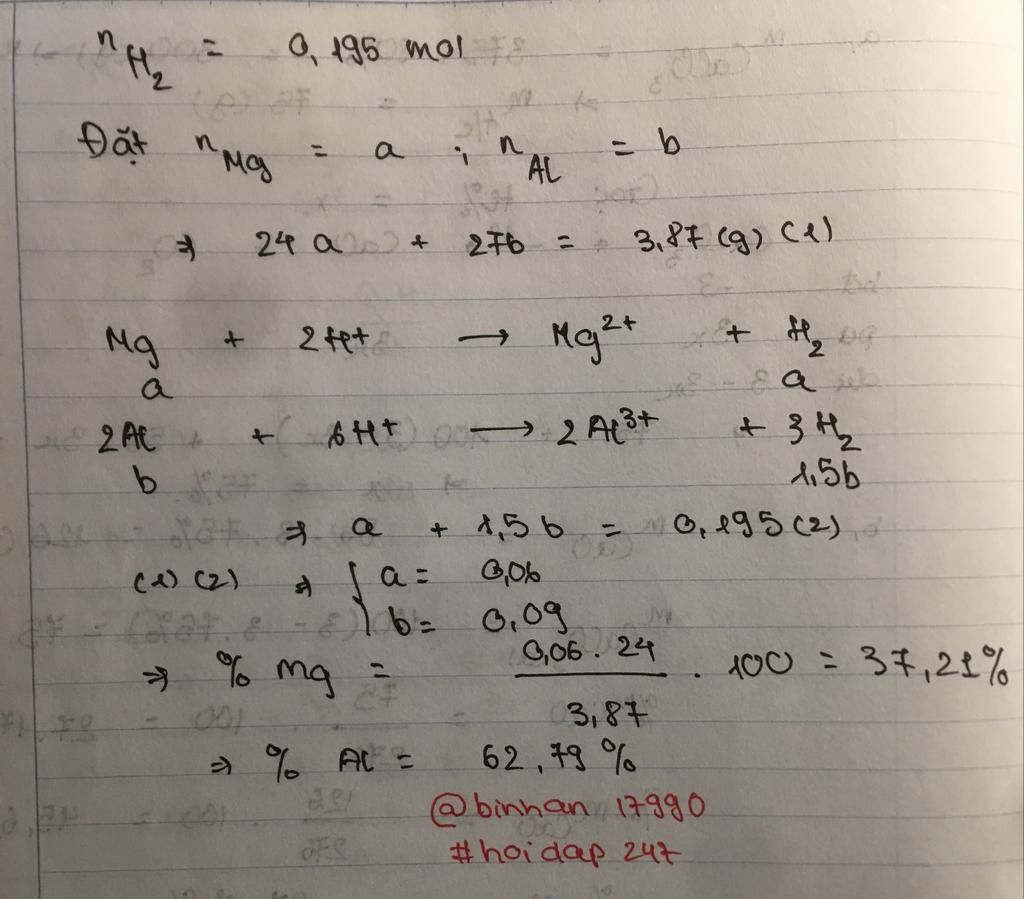 n H₂ = 0,195 mol
Đặt n Mg = a ; n Al = b
⇒ 24a + 27b = 3,87 (g) (1)
Mg + 2H⁺ → Mg²⁺ + H₂
a a
2Al + 6H⁺ → 2Al³⁺ + 3H₂
b 1,5b
⇒ a + 1,5b = 0,195 (2)
(1) (2) ⇒ { a = 0,06
b = 0,09
⇒ % Mg = 0,06 . 24 / 3,87 . 100 = 37,21%
⇒ % Al = 62,79%
@binhan 17990
#hoidap 247